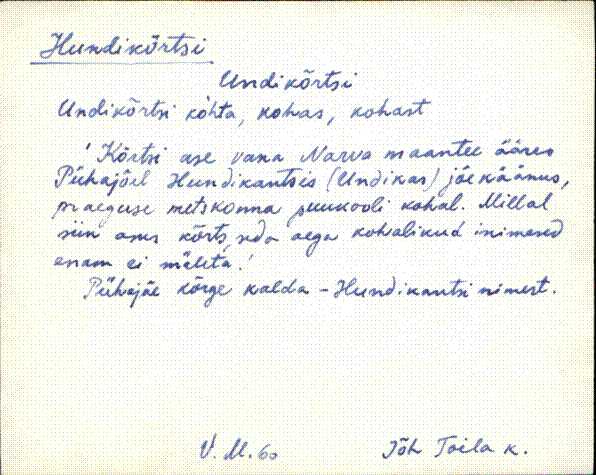 Hundikõrtsi
Undikõrtsi
Undikõrtsi kòhta, kohas, kohast
'Kõrtsi ase vana Narva maantee ääres
Pühajõel Hundikantsis (Undikas) jõekäänus,
praeguse metskonna puukooli kohal. Millal
siin asus kõrts, seda aega kohalikud inimesed
enam ei mäleta.'
Pühajõe kõrge kalda - Hundikantsi nimest.
V. M. 60 Jõh Toila k.